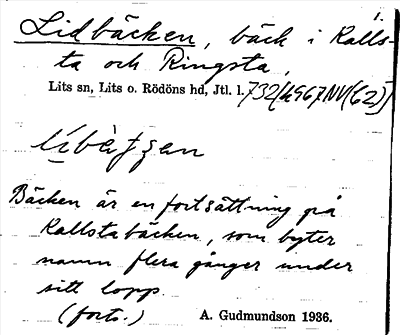 1.
Lidbäcken, bäck i Kalls-
ta och Ringsta,
Lits sn, Lits o. Rödöns hd, Jtl. l.
Bäcken är en fortsättning på
Kallstabäcken, som byter
namn flera gånger under
sitt lopp.
(forts.) A. Gudmundson 1936.